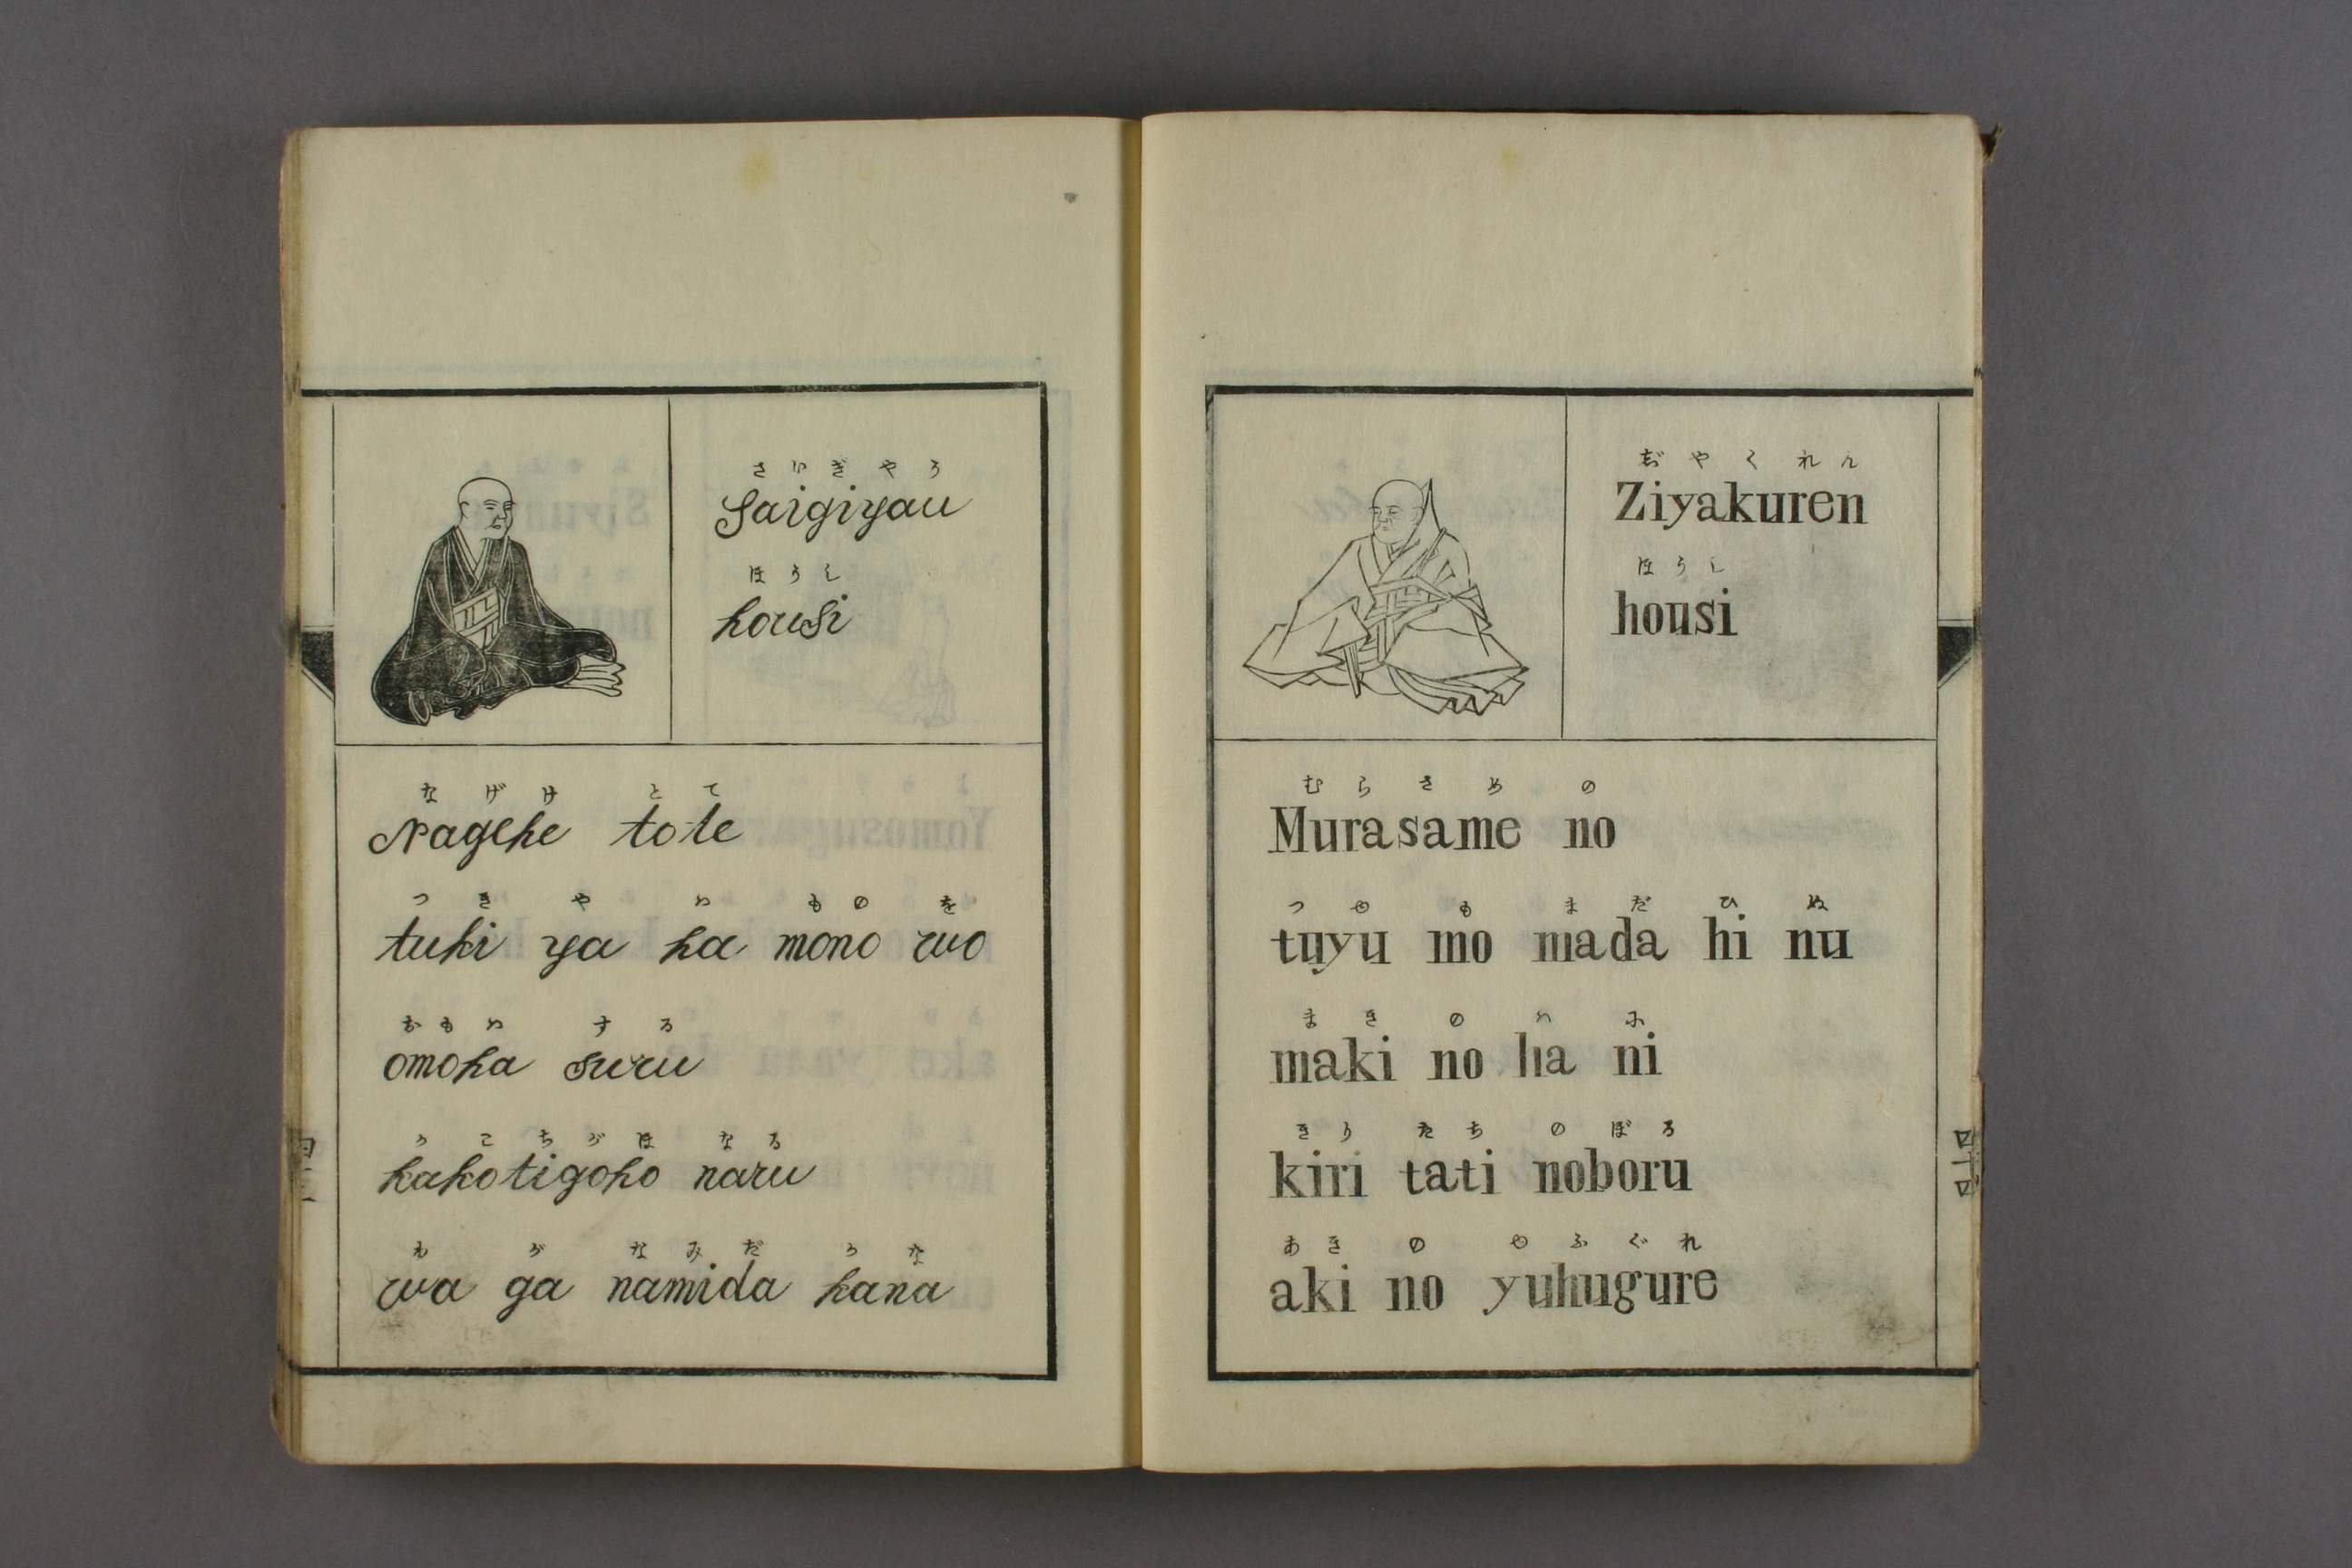 さいぎやう
Saigiyau
ほうし
housi
なげけ とて
Nageke tote
つき や は もの を
tuki ya ha mono wo
おもは する
omoha suru
かこちがほ なる
kakotigoho naru
わ が なみだ かな
wa ga namida kana
ぢやくれん
Ziyakuren
ほうし
housi
むらさめ の
Murasame no
つゆ も まだ ひ ぬ
tuyu mo mada hi nu
まき の は に
maki no ha ni
きり たち のぼる
kiri tati noboru
あき の ゆふぐれ
aki no yuhugure
四十四